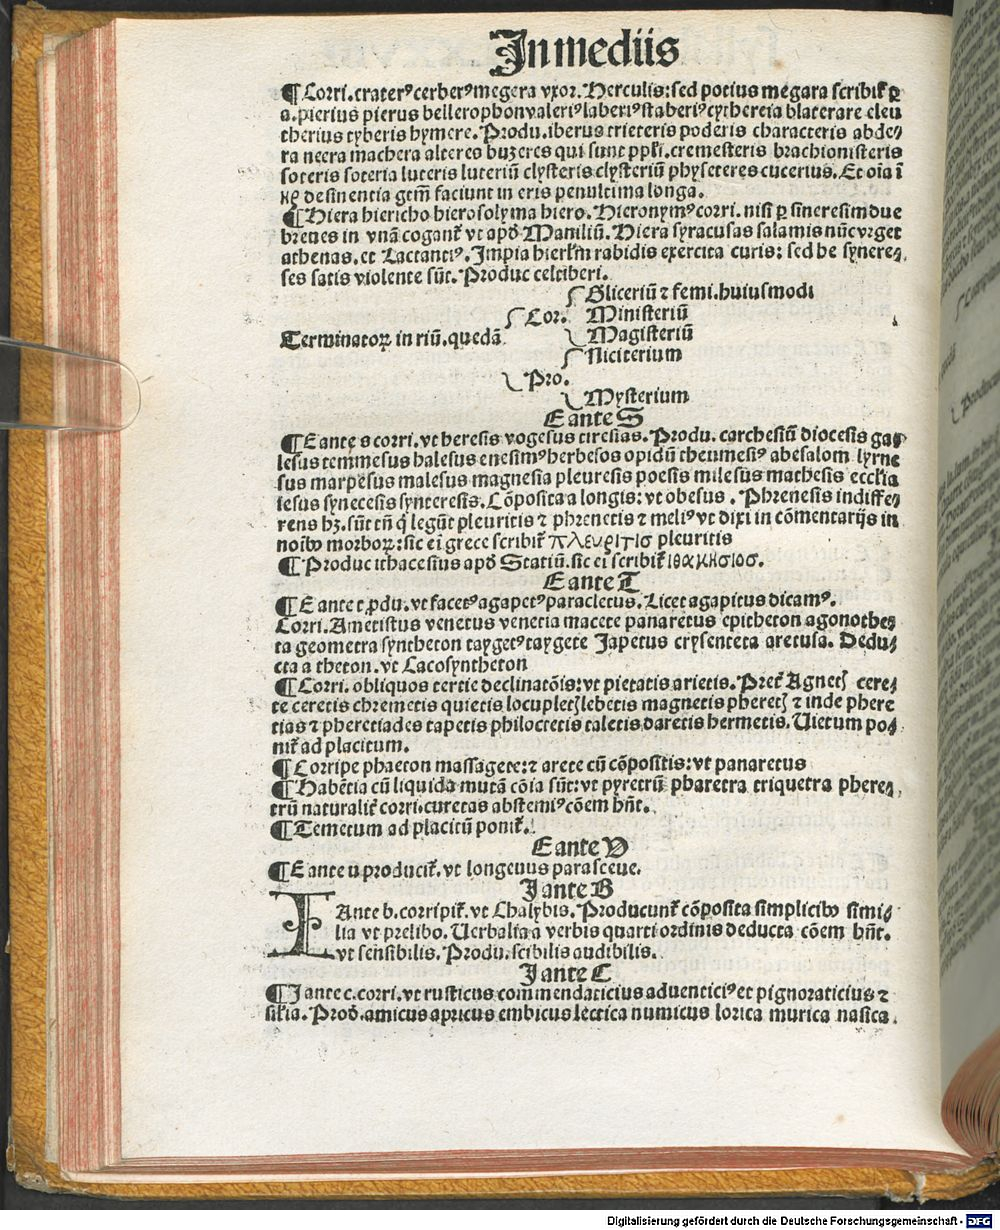 In mediis
¶ Corri. craterꝰ cerberꝰ megera vxor. Herculis: sed potius megara scribit̄ ꝑ
a. pierius pierus bellerophon valeriꝰ laberiꝰ staberiꝰ cythereia blaterare eleu
therius tyberis hymere. Produ. iberus trieteris poderis characteris abde⸗
ra neera machera alteres buzeres qui sunt ppl̄i. cremesteris brachionisteris
soteris soteria luteris luteriū clysteris clysteriū physeteres cucerius. Et oīa ī
ηρ desinentia gt̄m faciunt in eris penultima longa.
¶ Hiera hiericho hierosolyma hiero. Hieronymꝰ corri. nisi ꝑ sineresim due
breues in vnā cogant̄ vt apd̄ Maniliū. Hiera syracusas salamis nūc vrget
athenas. et Lactantiꝰ. Impia hierl̄m rabidis exercita curis: sed he synere⸗
ses satis violente sūt. Produc celtiberi.
Gliceriū ⁊ femi. huiusmodi
Cor. Ministeriū
Terminatoꝝ in riū. quedā Magisteriū
Niciterium
Pro.
Mysterium
E ante S
¶ E ante s corri. vt heresis vogesus tiresias. Produ. carchesiū diocesis ga⸗
lesus temmesus halesus enesimꝰ herbesos opidū theumesiꝰ abesalom lyrne
sus marpesus malesus magnesia pleuresis poesis milesus mathesis eccl̄ia
iesus synecesis synteresis. Cōposita a longis: vt obesus. Phrenesis indiffe⸗
rens hꝫ. sūt tn̄ q̄ legūt pleuritis ⁊ phrenetis ⁊ meliꝰ vt dixi in cōmentarijs in
noībꝰ morboꝝ: sic eī grece scribit̄ πλευριτισ pleuritis
¶ Produc ithacesius apd̄ Statiū. sic ei scribit̄ ιθακησιοσ.
E ante T
¶ E ante t ꝓdu. vt facetꝰ agapetꝰ paracletus. Licet agapitus dicamꝰ.
Corri. Ametistus venetus venetia macete panaretus epitheton agonothe⸗
ta geometra syntheton taygetꝰ taygete Japetus crysenteta aretusa. Dedu⸗
cta a theton. vt Lacosyntheton
¶ Corri. obliquos tertie declinatōis: vt pietatis arietis. Pret̄ Agnetꝭ cere⸗
te ceretis chremetis quietis locupletꝭ lebetis magnetis pheretꝭ ⁊ inde phere
tias ⁊ pheretiades tapetis philoctetis taletis daretis hermetis. Uietum po⸗
nit̄ ad placitum.
¶ Corripe phaeton massagete: ⁊ arete cū cōpositis: vt panaretus
¶ Habētia cū liquida mutā cōia sūt: vt pyretrū pharetra triquetra phere⸗
trū naturalit̄ corri. curetas abstemiꝰ cōem hn̄t.
¶ Temetum ad placitū ponit̄.
E ante V
¶ E ante u producit̄. vt longeuus parasceue.
I ante B
I Ante b. corripit̄. vt Chalybis. Producunt̄ cōposita simplicibꝰ simi⸗
lia vt prelibo. Uerbalia a verbis quarti ordinis deducta cōem hn̄t.
vt sensibilis. Produ. scibilis audibilis.
I ante C
¶ I ante c. corri. vt rusticus commendaticius aduenticiꝰ et pignoraticius ⁊
sil̄ia. Prod. amicus apricus embicus lectica numicus lorica murica nasica.
Digitalisierung gefördert durch die Deutsche Forschungsgemeinschaft - DFG